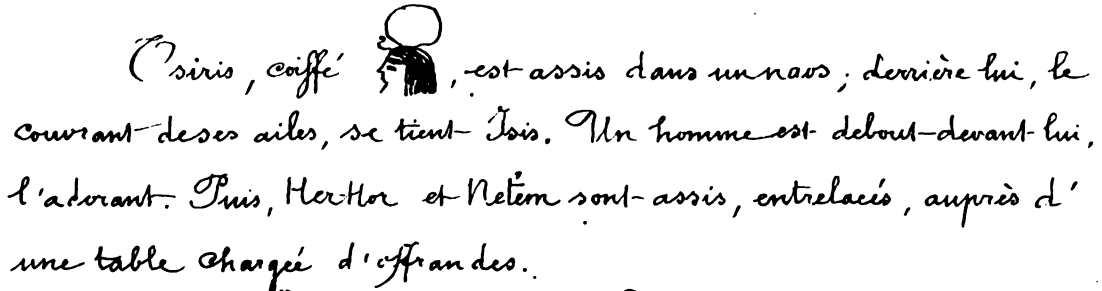 Osiris, coiffé , est assis dans un naos ; derrière lui, le
couvrant de ses ailes, se tient Isis. Un homme est debout devant lui,
l'adorant. Puis, Her-Hor et Netem sont assis, entrelacés, auprès d'
une table chargée d'offrandes.